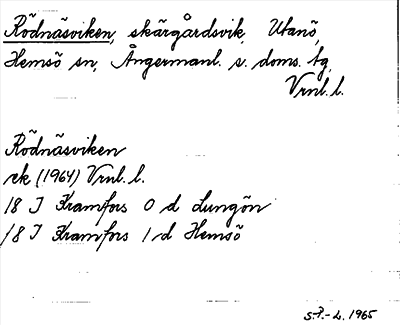 Rödnäsviken, skärgårdsvik, Utanö,
Hemsö sn, Ångermanl. s. doms. tg,
Vrnl. l.
Rödnäsviken
ek (1964) Vrnl. l.
18 J Kramfors 0 d Lungön
18 J Kramfors 1 d Hemsö
1965